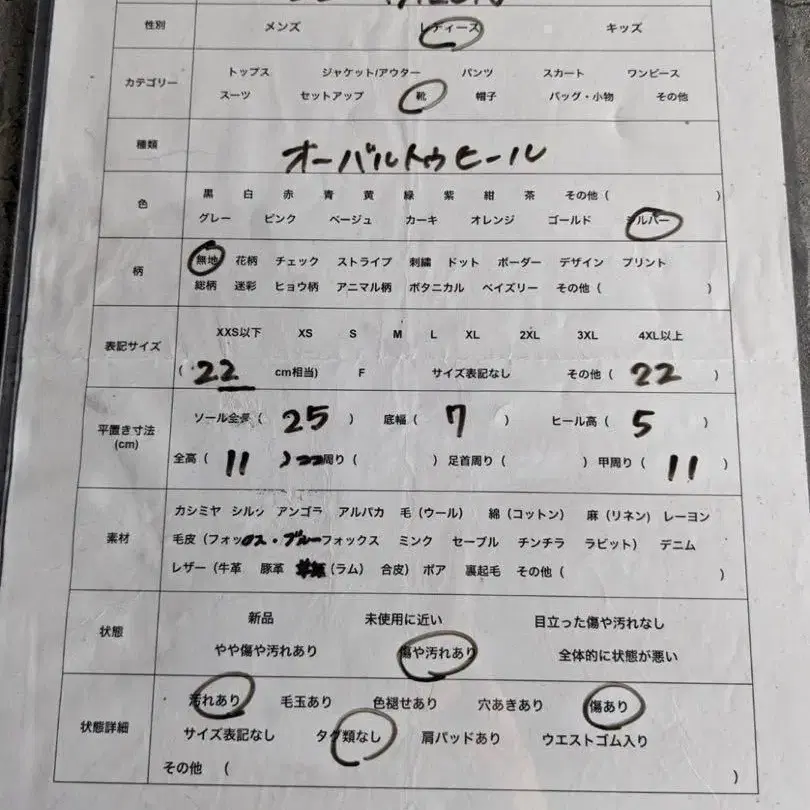 性別 メンズ レディース キッズ
カテゴリー トップス ジャケット/アウター パンツ スカート ワンピース
スーツ セットアップ 靴 帽子 バッグ・小物 その他
種類 オーバルトゥヒール
色 黒 白 赤 青 黄 緑 紫 紺 茶 その他 ( )
グレー ピンク ベージュ カーキ オレンジ ゴールド シルバー
柄 無地 花柄 チェック ストライプ 刺繍 ドット ボーダー デザイン プリント
総柄 迷彩 ヒョウ柄 アニマル柄 ボタニカル ペイズリー その他 ( )
表記サイズ XXS以下 XS S M L XL 2XL 3XL 4XL以上
( 22 cm相当) F サイズ表記なし その他 ( 22 )
平置き寸法 (cm) ソール全長 ( 25 ) 底幅 ( 7 ) ヒール高 ( 5 )
全高 ( 11 ) 周り ( ) 足首周り ( ) 甲周り ( 11 )
素材 カシミヤ シルク アンゴラ アルパカ 毛 (ウール) 綿 (コットン) 麻 (リネン) レーヨン
毛皮 (フォックス・ブルーフォックス ミンク セーブル チンチラ ラビット) デニム
レザー (牛革 豚革 (ラム) 合皮) ボア 裏起毛 その他 ( )
状態 新品 未使用に近い 目立った傷や汚れなし
やや傷や汚れあり 傷や汚れあり 全体的に状態が悪い
状態詳細 汚れあり 毛玉あり 色褪せあり 穴あきあり 傷あり
サイズ表記なし タグ類なし 肩パッドあり ウエストゴム入り
その他 ( )